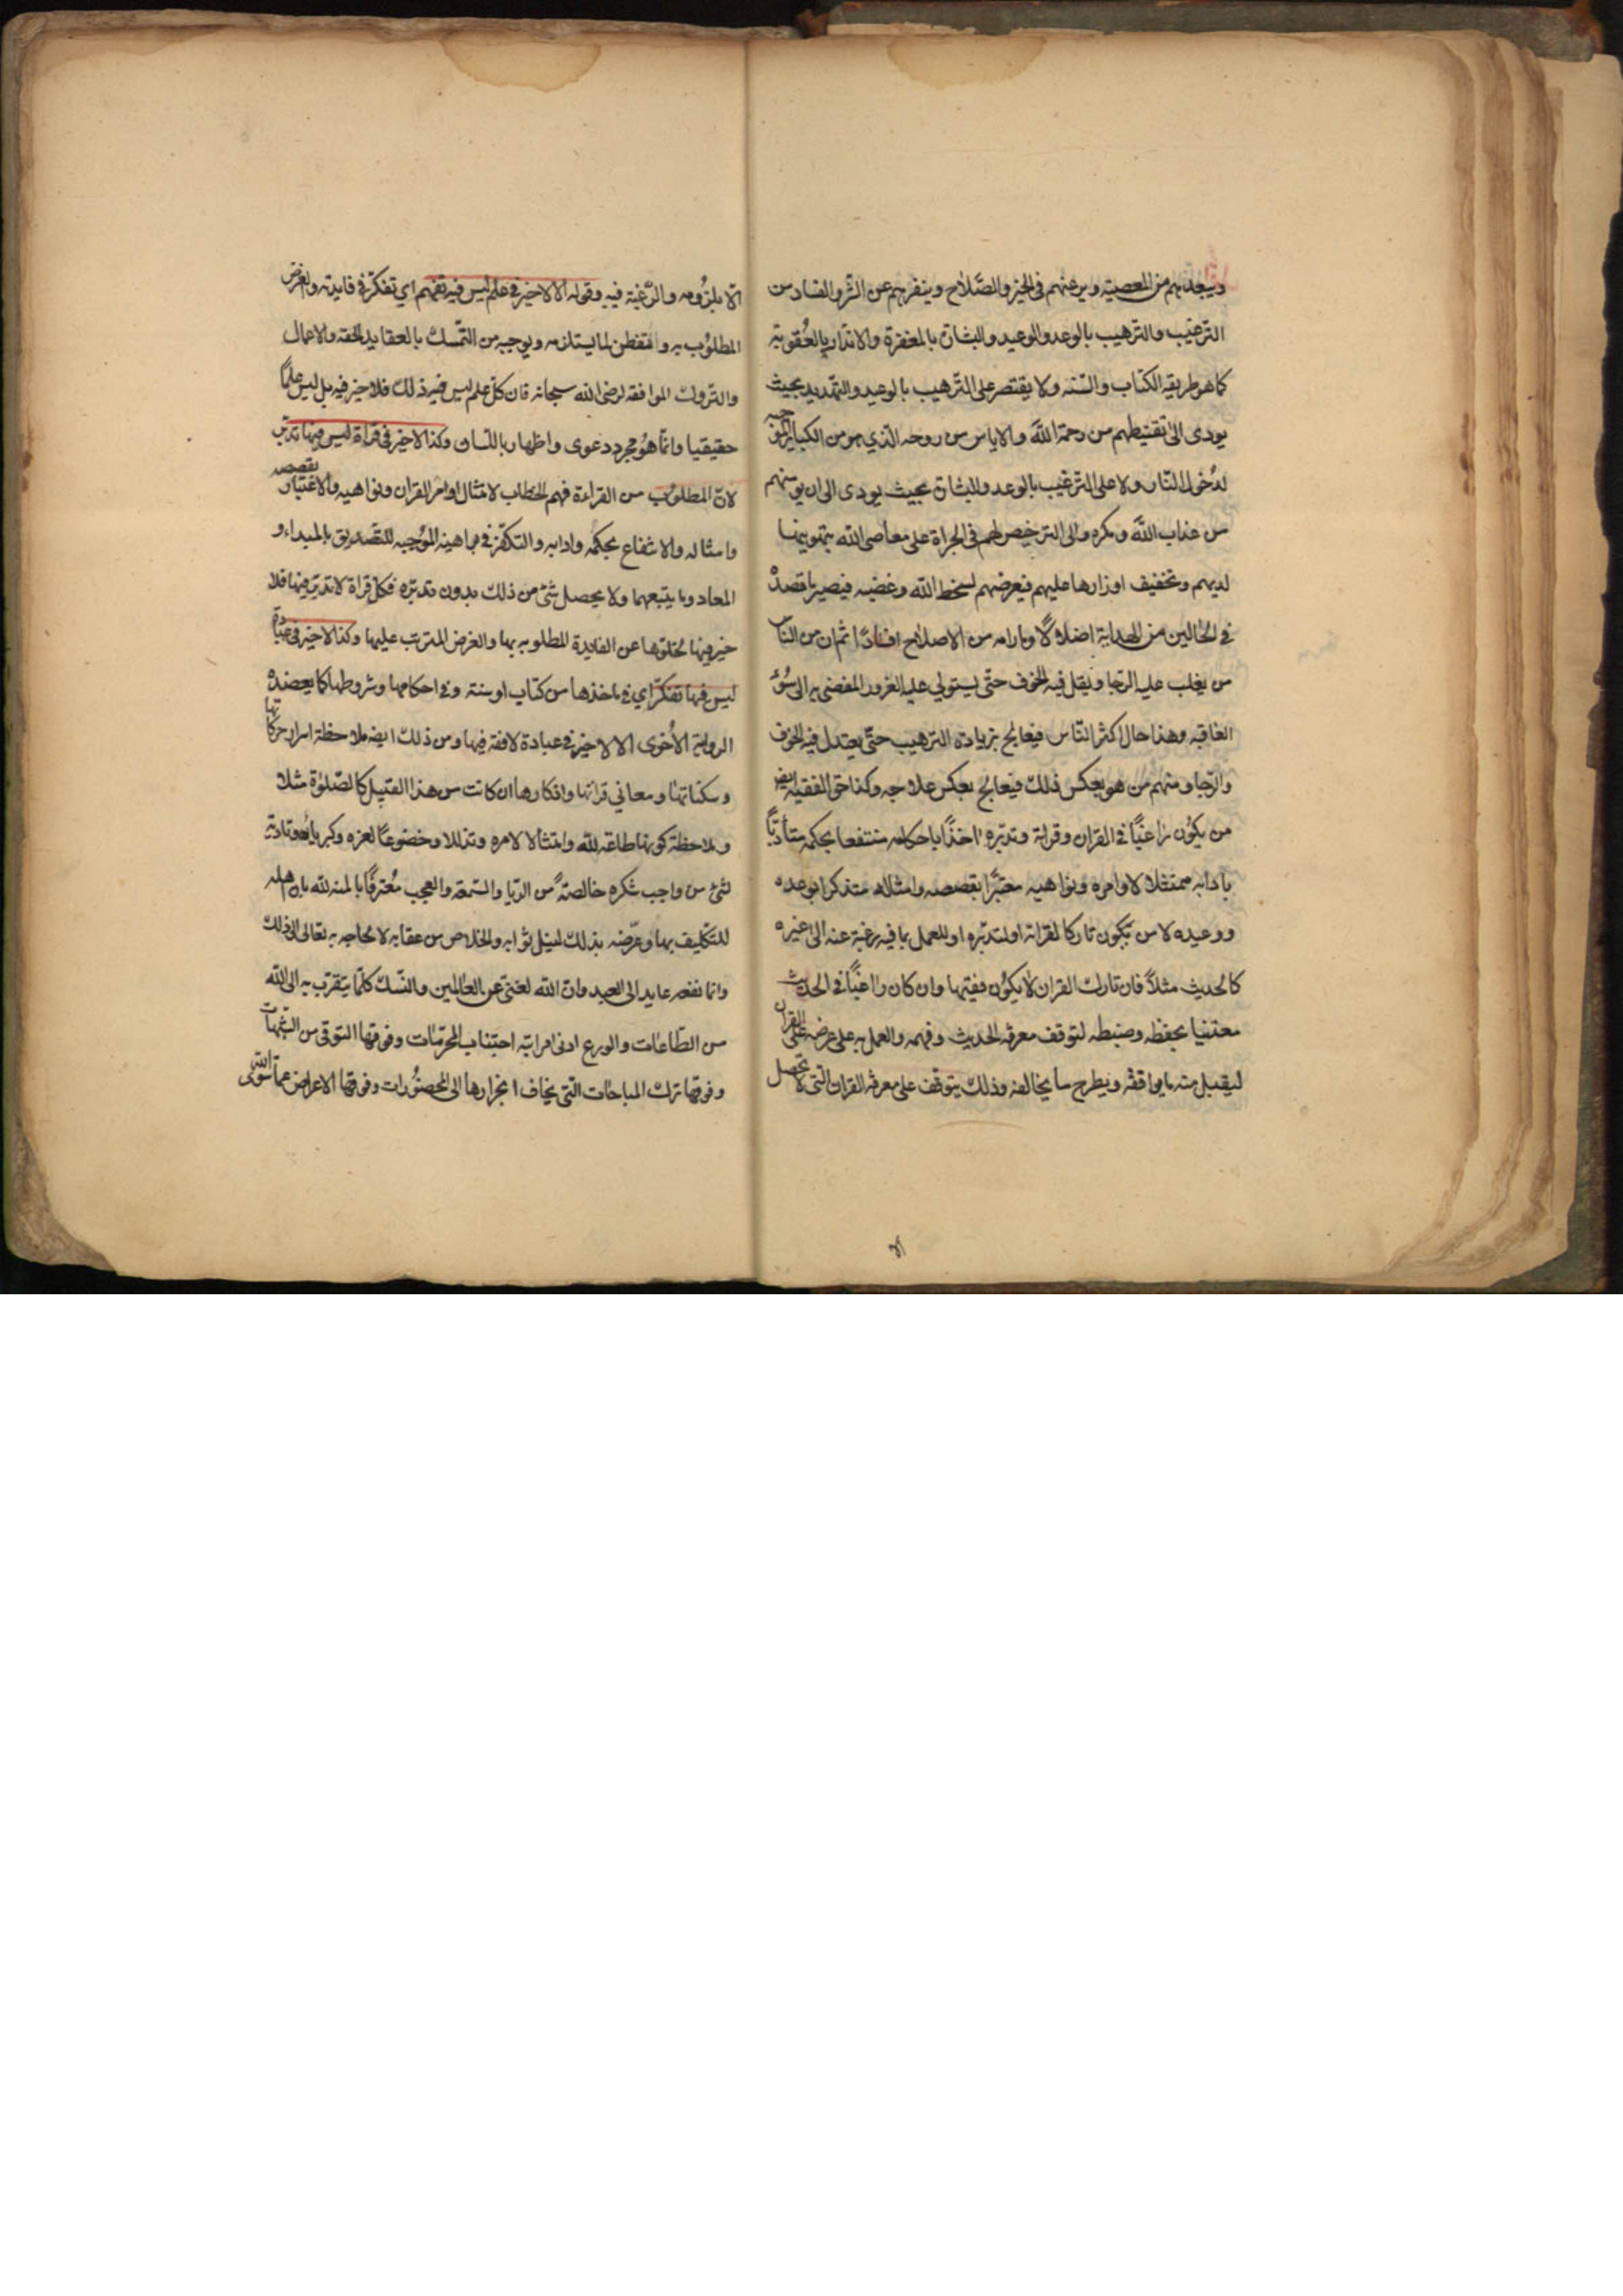 ويبعدهم من المعصية ويرغبهم في الخير والصلاح وينفرهم عن الشر والفساد من
الترغيب والترهيب بالوعد والوعيد والبشارة بالمغفرة والانذار بالعقوبة
كما هو طريقه الكتاب والسنه ولا يقتصر على الترهيب بالوعيد والتهديد بحيث
يودى الى تقنيطهم من رحمة الله والاياس من روحه الذي هو من الكباير الموجبه
لدخول النار ولا على الترغيب بالوعد والبشارة بحيث يودى الى ان يومنهم
من عذاب الله ومكره والى الترخيص لهم في الجراة على معاصى الله بتهوينها
لديهم وتخفيف اوزارها عليهم فيعرضهم لسخط الله وغضبه فيصير ما قصده
في الحالين من الهداية اضلالا وما رامه من الاصلاح افسادا ثم ان من الناس
من يغلب عليه الرجا ويقل فيه الخوف حتى يستولي عليه الغرور المفضى به الى سوء
العاقبه وهذا حال اكثر الناس فيعالج بزيادة الترهيب حتى يعتدل فيه الخوف
والرجا ومنهم من هو بعكس ذلك فيعالج بعكس علاجه وكذا حق الفقيه ايضا
من يكون راغبا في القران وقراته وتدبره اخذا باحكامه منتفعا بحكمه متأدبا
بادابه ممتثلا لاوامره ونواهيه معتبرا بقصصه وامثاله متذكرا بوعده
ووعيده لا من يكون تاركا لقراته او لتدبره او للعمل بما فيه رغبة عنه الى غيره
كالحديث مثلا فان تارك القران لا يكون فقيها وان كان راغبا في الحديث
معتنيا بحفظه وضبطه لتوقف معرفه الحديث وفهمه والعمل به على عرضه على القران
ليقبل منه ما يوافقه ويطرح ما يخالفه وذلك يتوقف على معرفه القران التي لا تحصل
الا بلزومه والرغبة فيه وقوله الا لا خير في علم ليس فيه تفهم اي تفكر في فايدته والغرض
المطلوب به والتفطن لما يستلزمه ويوجبه من التمسك بالعقايد الحقه والاعمال
والتروك الموافقه لرضى الله سبحانه فان كل علم ليس فيه ذلك فلا خير فيه بل ليس علما
حقيقيا وانما هو مجرد دعوى واظهار باللسان وكذا لا خير في قراة ليس فيها تدبر
لان المطلوب من القراءة فهم الخطاب لامتثال اوامر القران ونواهيه والاعتبار بقصصه
وامثاله والانتفاع بحكمه وادابه والتفكر في براهينه الموجبه للتصديق بالمبداء و
المعاد وما يتبعهما ولا يحصل شئ من ذلك بدون تدبره فكل قراة لا تدبر فيها فلا
خير فيها لخلوها عن الفايدة المطلوبه بها والغرض المترتب عليها وكذا لا خير في عبادة
ليس فيها تفكر اي في ماخذها من كتاب او سنة وفي احكامها وشروطها كما يعضده
الرواية الاخرى الا لا خير في عبادة لا فقه فيها ومن ذلك ايضا ملاحظة اسرار حركاتها
وسكناتها ومعاني قراتها واذكارها ان كانت من هذا القبيل كالصلوة مثلا
وملاحظة كونها طاعة لله وامتثالا لامره وتذللا وخضوعا لعزه وكبريائه وتادية
لشئ من واجب شكره خالصة من الريا والسمعه والعجب معترفا بالمنه لله بان اهله
للتكليف بها وعرضه بذلك لنيل ثوابه والخلاص من عقابه لا لحاجه به تعالى الى ذلك
وانما نفعه عايد الى العبد وان الله لغنى عن العالمين والنسك كلما يتقرب به الى الله
من الطاعات والورع ادنى مراتبه اجتناب المحرمات وفوقها التوقى من الشبهات
وفوقها ترك المباحات التي يخاف انجرارها الى المحضورات وفوقها الاعراض عما سوى الله